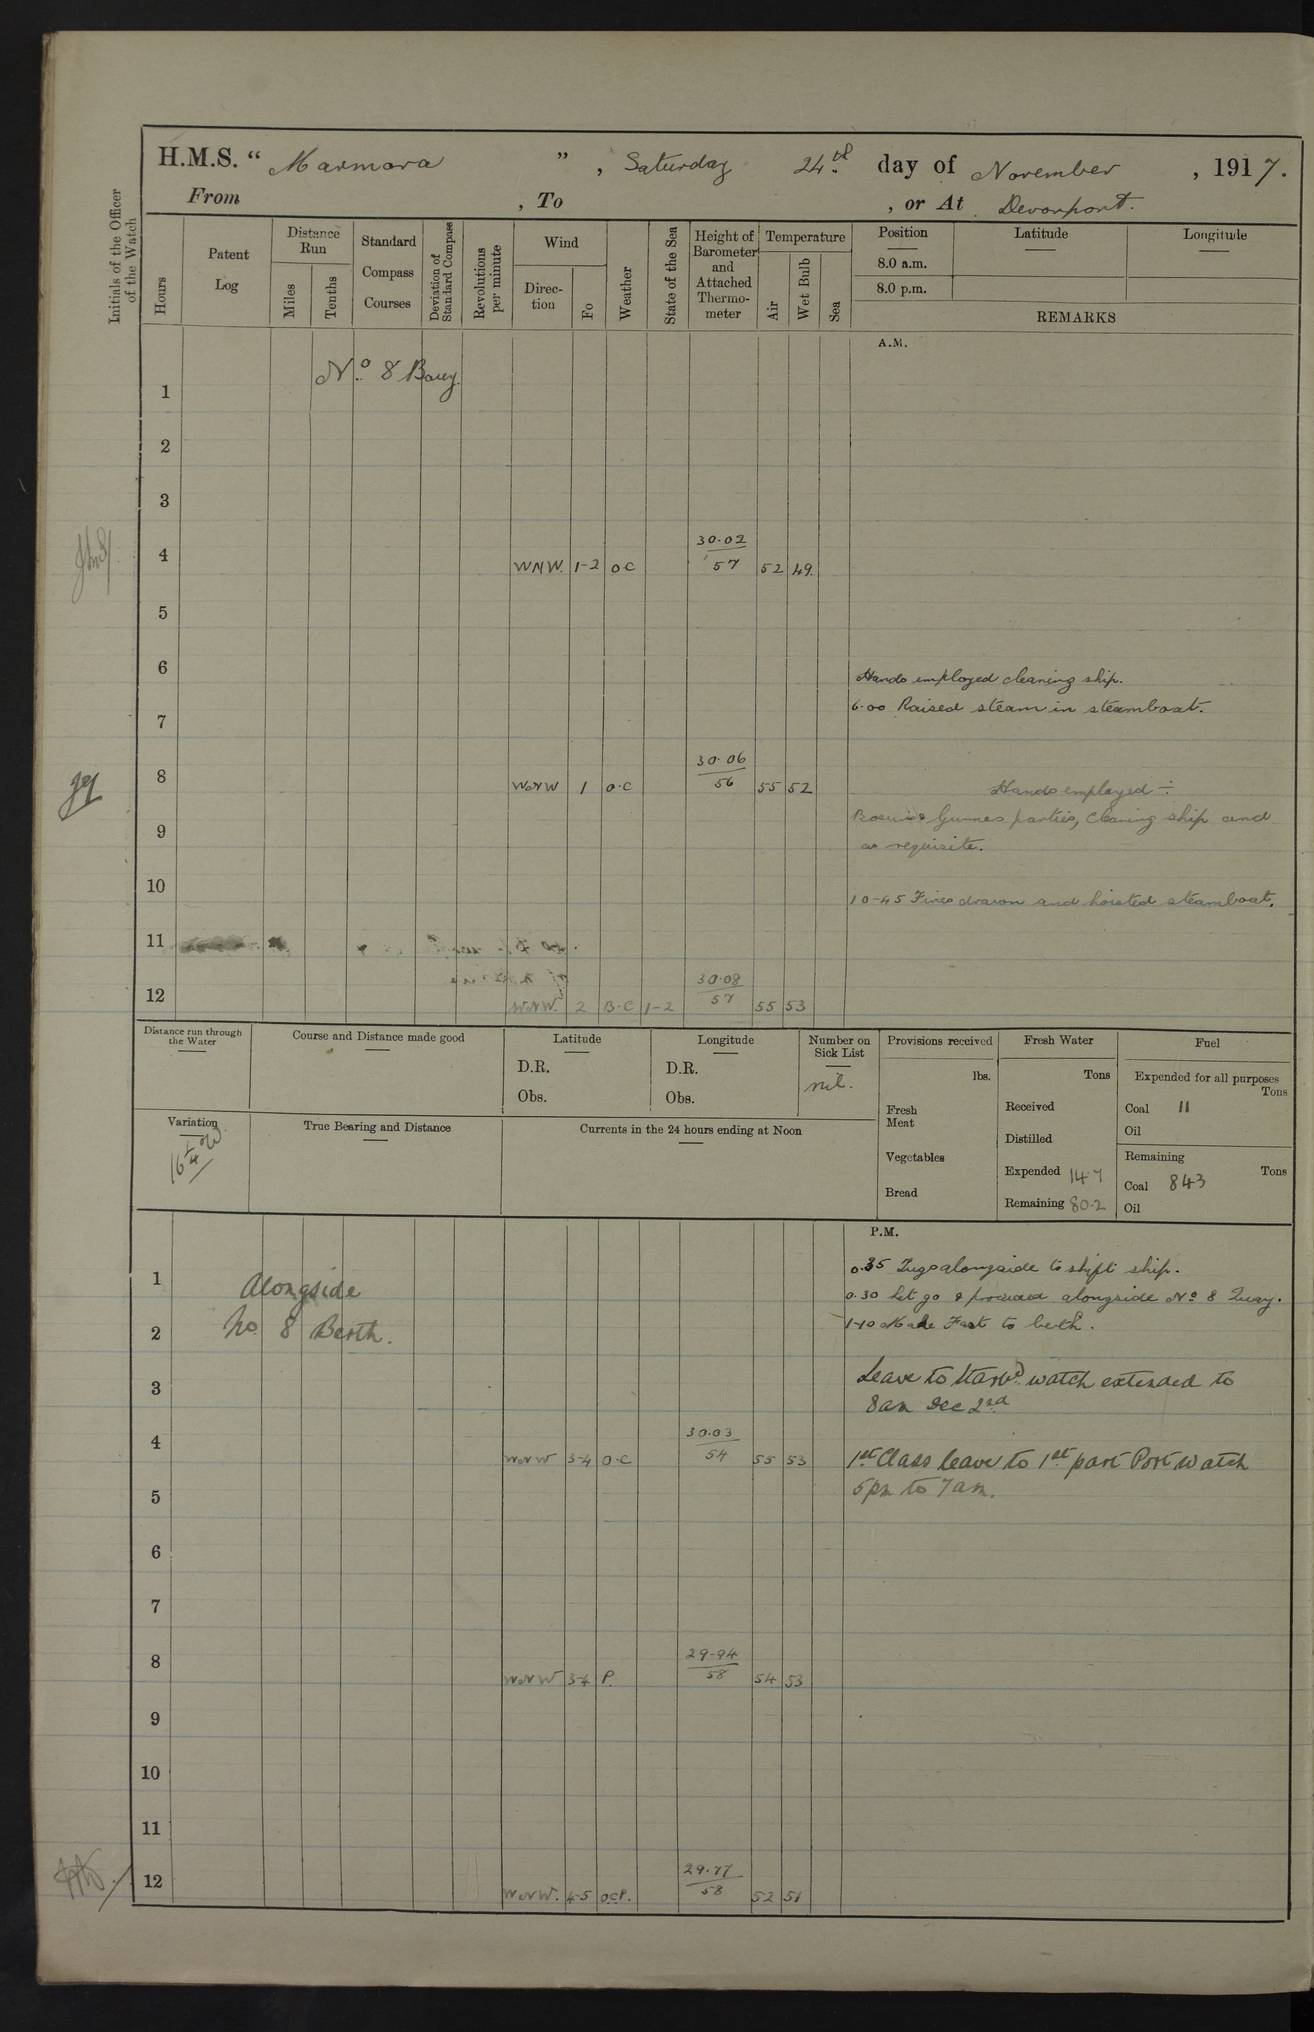 H.M.S. " Marmora ", Saturday 24th day of November, 1917.
From , To , or At Devonport.
Initials of the Officer of the Watch
Hours
Patent Log
Distance Run
Miles
Tenths
Standard Compass Courses
Deviation of Standard Compass
Revolutions per minute
Wind
Direction
Fo
Weather
State of the Sea
Height of Barometer and Attached Thermometer
Temperature
Air
Wet Bulb
Sea
Position Latitude Longitude
8.0 a.m.
8.0 p.m.
REMARKS
A.M.
1 No. 8 Buoy.
2
3
4 WNW. 1-2 O C 30.02 57 52 49
5
6 Hands employed cleaning ship.
6.00 Raised steam in steamboat.
7
8 WNW 1 O.C 30.06 56 55 52
Hands employed ÷
Gunners parties, cleaning ship and
9
as requisite.
10 10-45 Fires drawn and hoisted steamboat.
11
12 WNW. 2 B.C 1-2 30.08 57 55 53
Distance run through the Water
Course and Distance made good
Latitude
D.R.
Obs.
Longitude
D.R.
Obs.
Number on Sick List
nil.
Provisions received
lbs.
Fresh Meat
Vegetables
Bread
Fresh Water
Tons
Received
Distilled
Expended 14.7
Remaining 80.2
Fuel
Expended for all purposes
Tons
Coal 11
Oil
Remaining
Tons
Coal 843
Oil
Variation
16 1/4 W
True Bearing and Distance
Currents in the 24 hours ending at Noon
P.M.
0.35 Tugs alongside to shift ship.
1 Alongside
0.30 Let go & proceeded alongside No. 8 Quay.
2 No 8 Berth.
1-10 Made Fast to berth.
3 Leave to Starbd watch extended to
8am Dec 2nd
4 WNW 3-4 O.C 30.03 54 55 53
1st Class leave to 1st part Port Watch
5pm to 7am.
5
6
7
8 WNW 3-4 P. 29-94 58 54 53
9
10
11
12 WNW. 4-5 OCP. 29.77 58 52 51